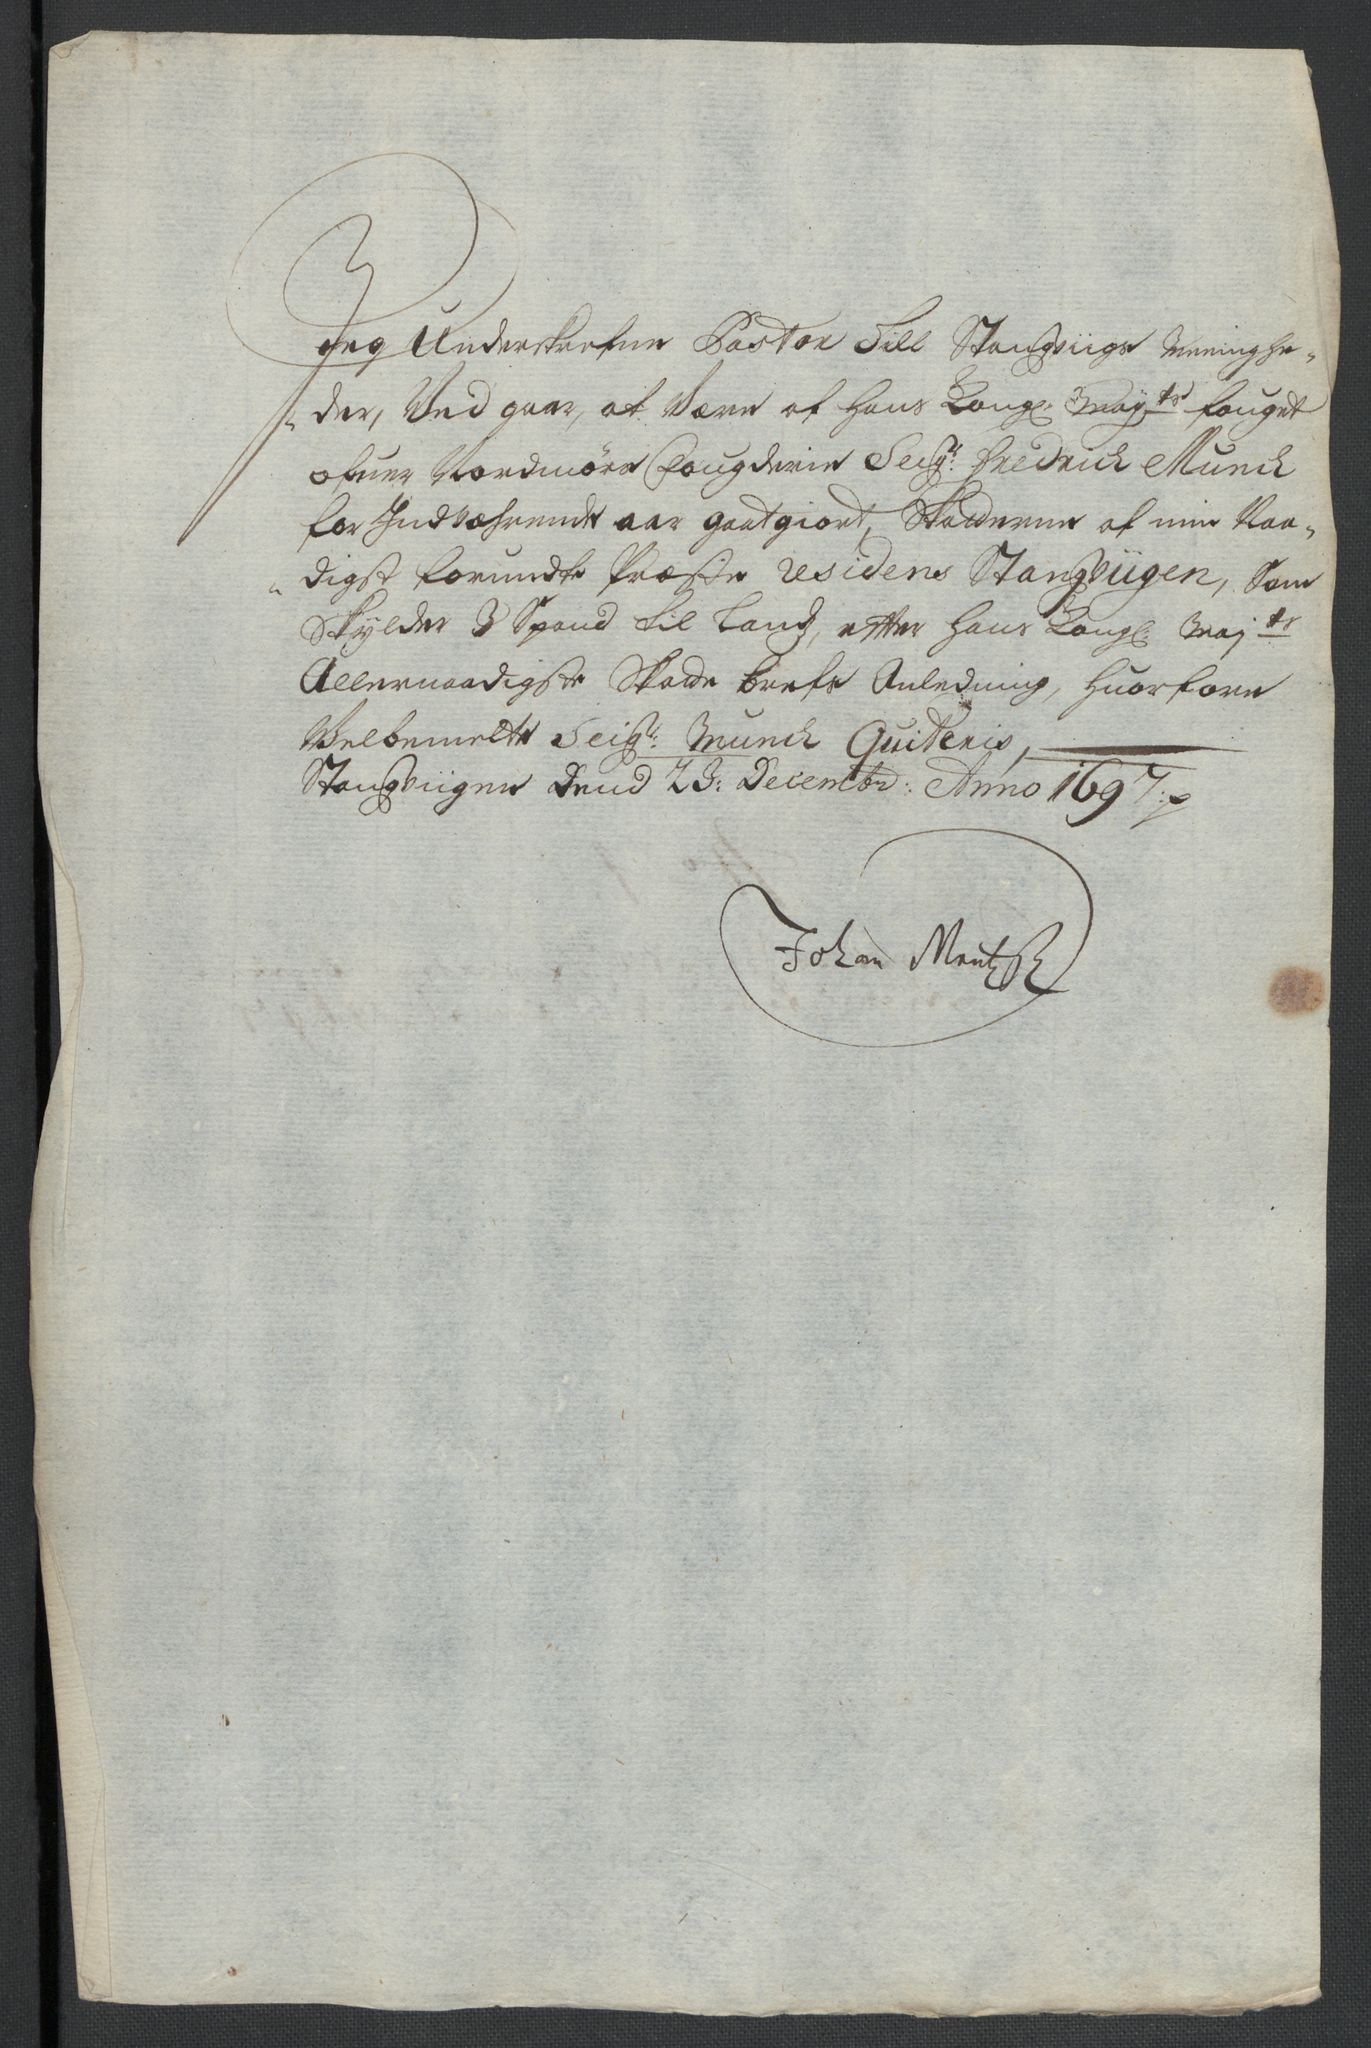 Jeg Underskrefne Pastor Till Stangviigs Meenighe-
der, Ved gaar, at Være af Hans Kongl: May.ts fouget
ofuer Nordmöre Fougderie Seig.r Fredrich Munch
for Indvæhrende aar gaatgiort, Skatterne af min Naa-
digst forundte Præste residens Stangviigen, Som
Skylder 3 Spand til Land, efter Hans Kongl: May.ts
Allernaadigste Skatte brefs Anledning, huorfore
Velbemelte Seig.r Munch Quiteris,
Stangviigen Dend 23: Decembr: Anno 1697:
Johan Mentzsch